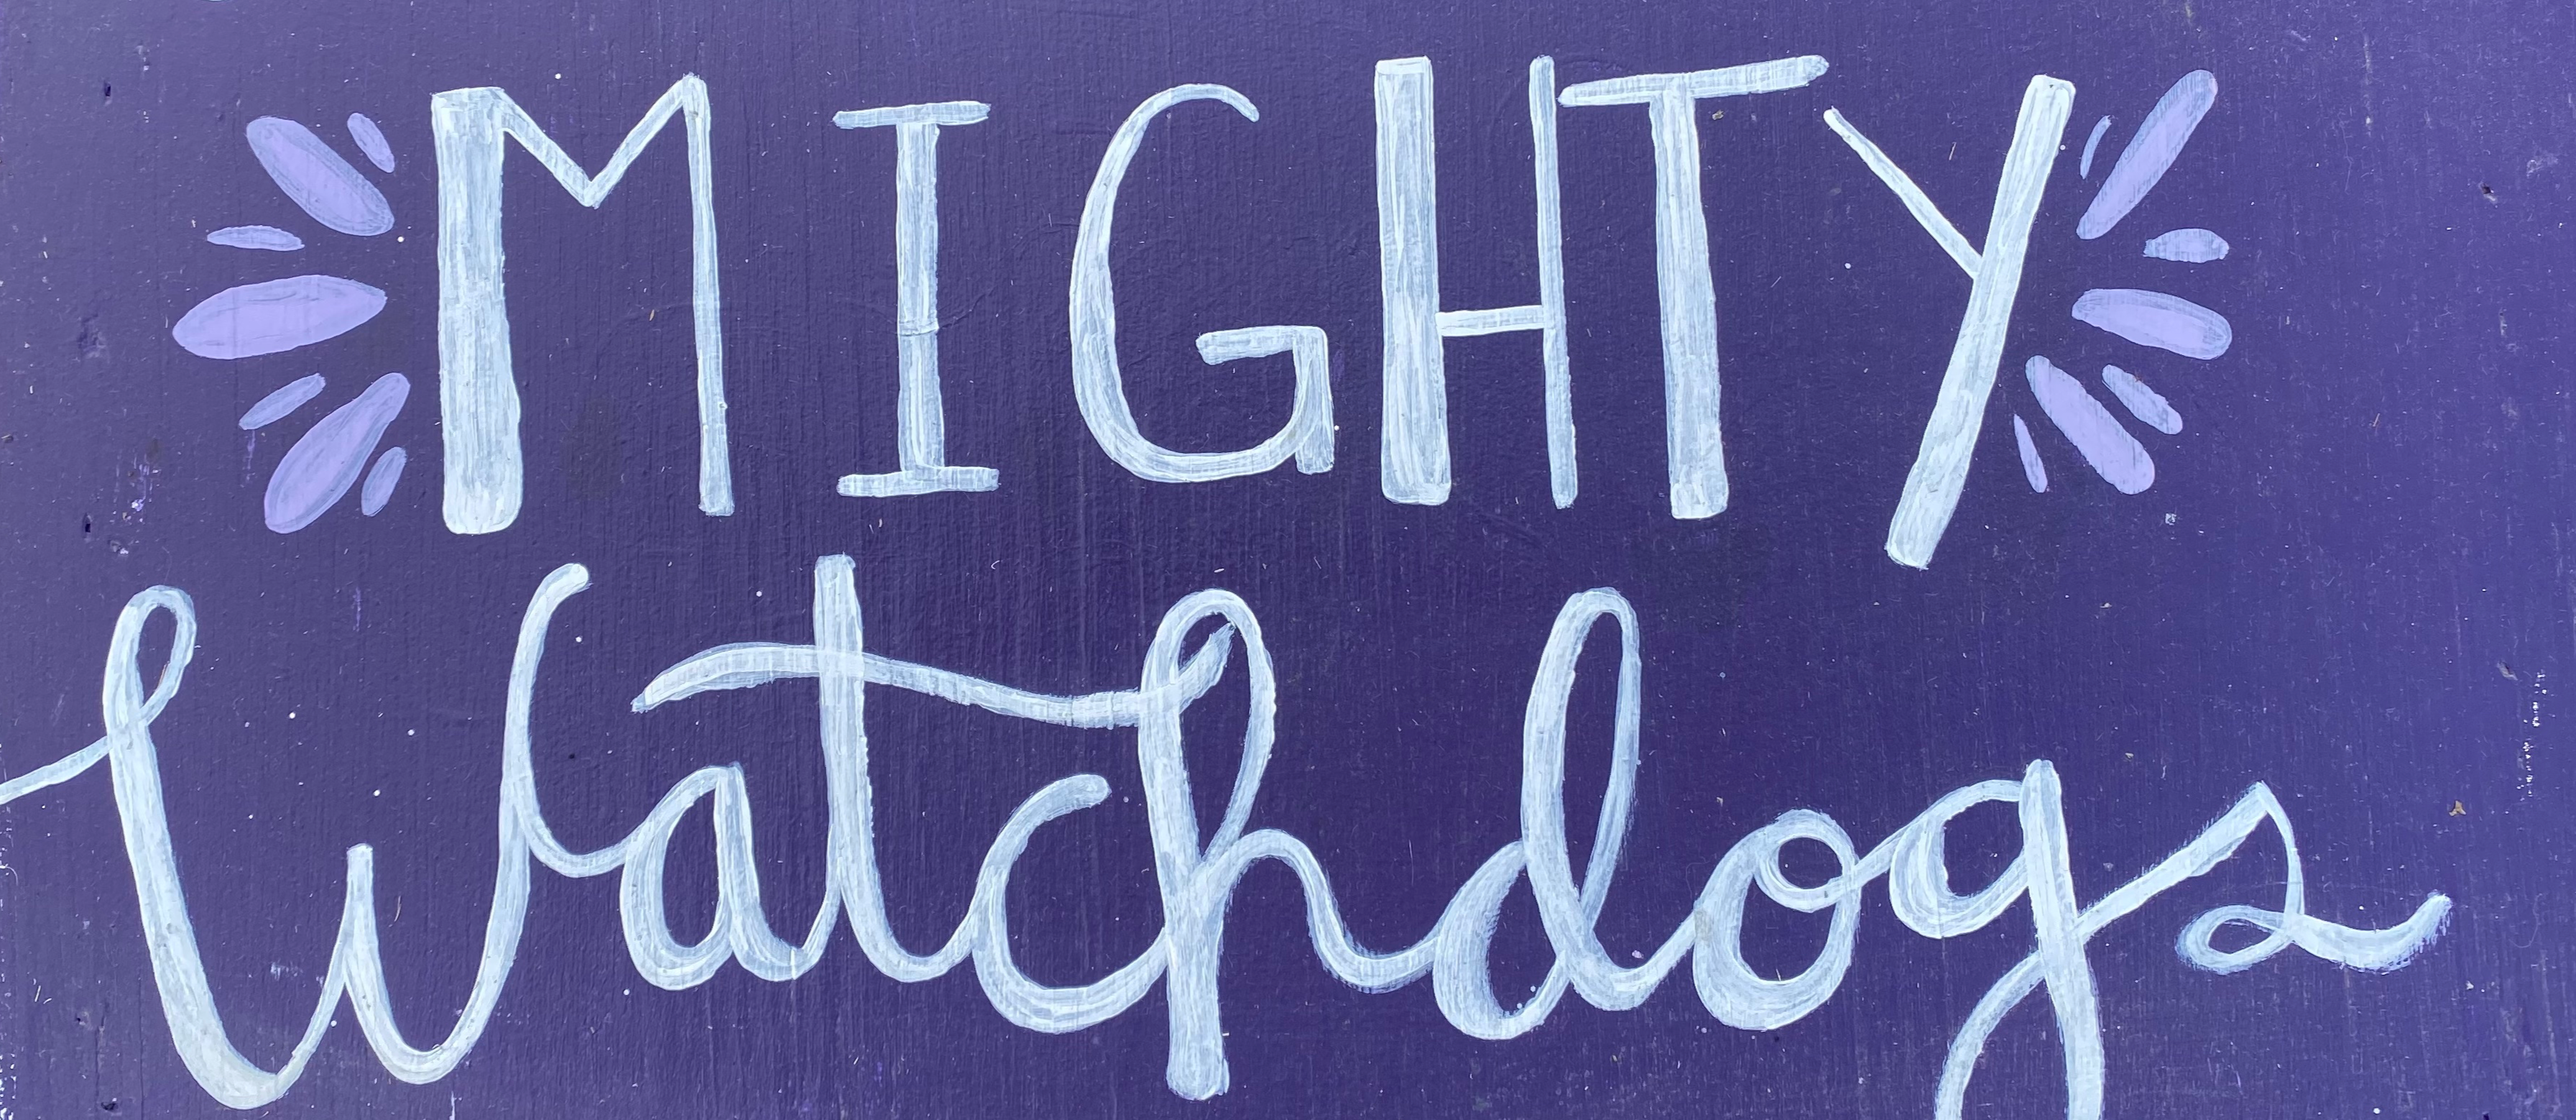 MIGHTY
Watchdogs